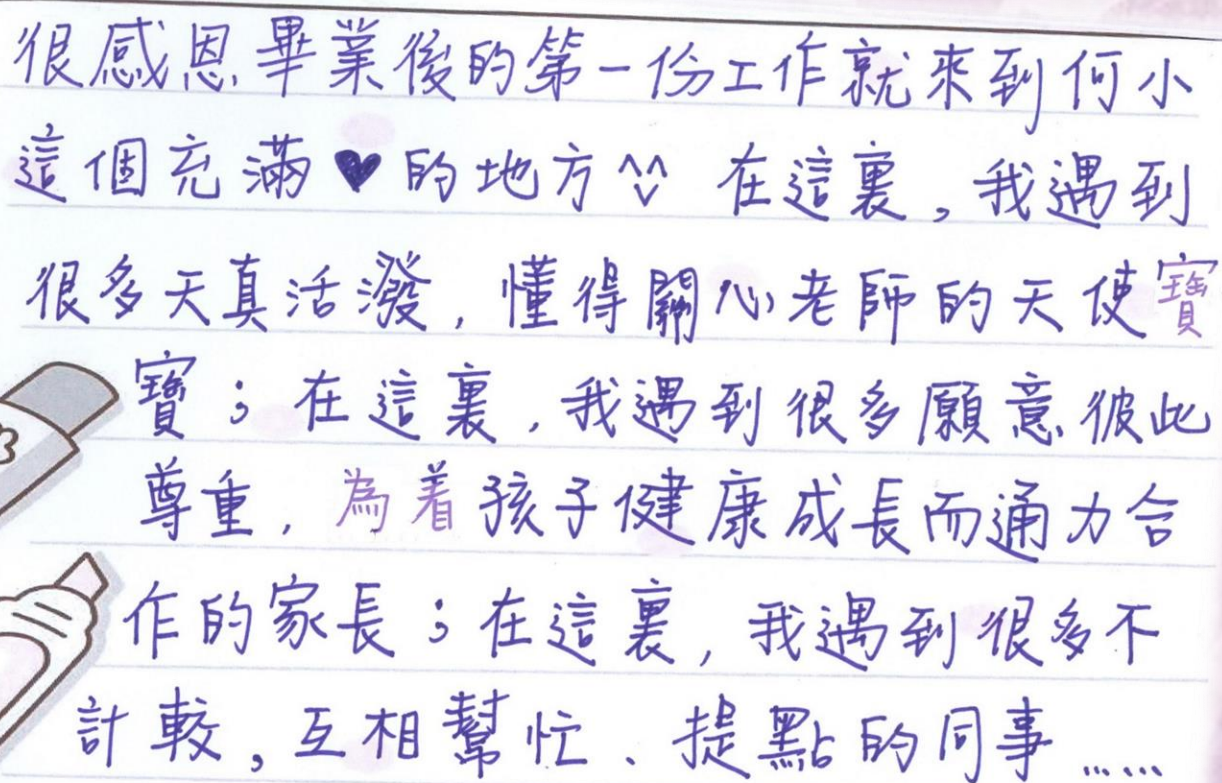 很感恩畢業後的第一份工作就來到何小
這個充滿♥的地方^^ 在這裏，我遇到
很多天真活潑，懂得關心老師的天使寶
寶；在這裏，我遇到很多願意彼此
尊重，為着孩子健康成長而通力合
作的家長；在這裏，我遇到很多不
計較，互相幫忙、提點的同事……